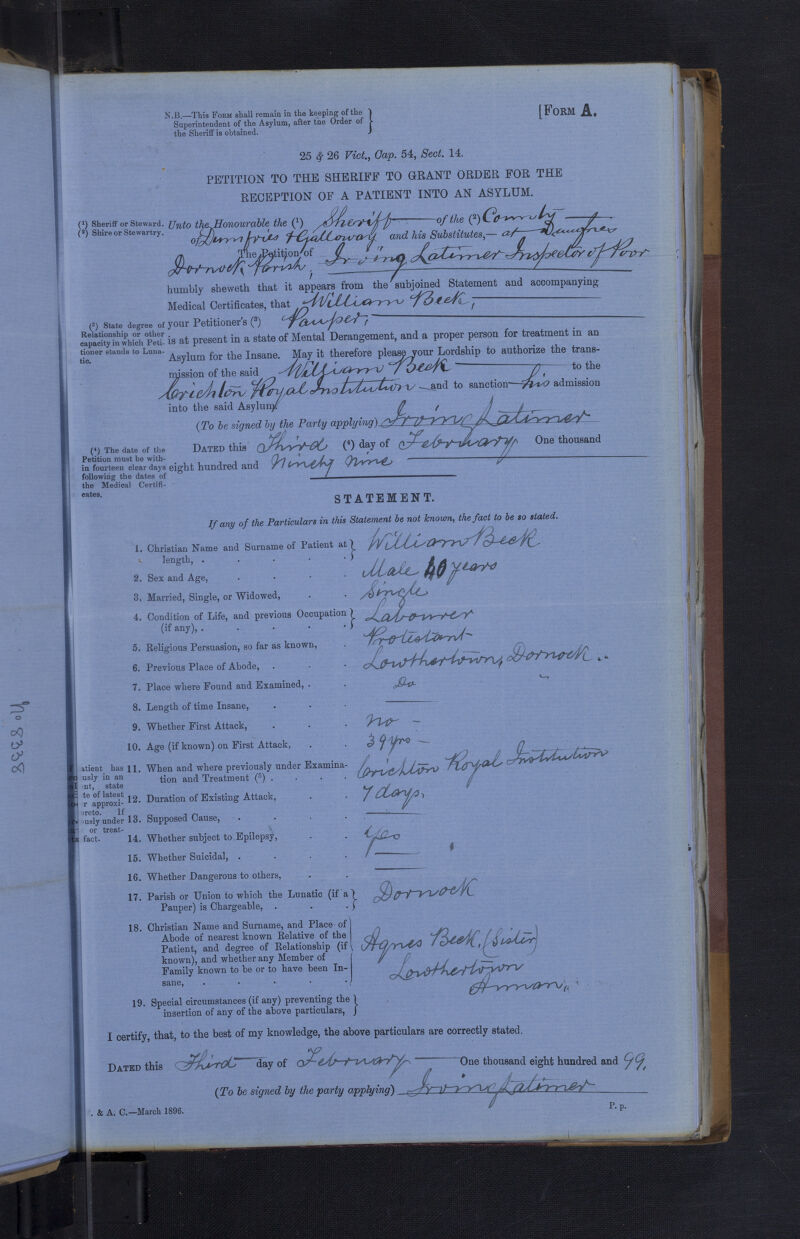 N.B.—This Form shall remain in the keeping of the
Superintendent of the Asylum, after the Order of
the Sheriff is obtained.
[Form A.
25 & 26 Vict., Cap. 54, Sect. 14.
PETITION TO THE SHERIFF TO GRANT ORDER FOR THE
RECEPTION OF A PATIENT INTO AN ASYLUM.
(1) Sheriff or Steward.
(2) Shire or Stewartry.
Unto the Honourable the (1) Sheriff of the (2) County
of Dumfries & Galloway and his Substitutes,— at Dumfries
The Petition of Irving Latimer Inspector of Poor
Dornock Parish,
humbly sheweth that it appears from the subjoined Statement and accompanying
Medical Certificates, that William Beck,
(3) State degree of
Relationship or other
capacity in which Peti-
tioner stands to Luna-
tic.
your Petitioner's (3) Pauper,
is at present in a state of Mental Derangement, and a proper person for treatment in an
Asylum for the Insane. May it therefore please your Lordship to authorize the trans-
mission of the said William Beck to the
Crichton Royal Institution and to sanction his admission
into the said Asylum
(To be signed by the Party applying) Irving Latimer
(4) The date of the
Petition must be with-
in fourteen clear days
following the dates of
the Medical Certifi-
cates.
Dated this Third (4) day of February One thousand
eight hundred and Ninety Nine
STATEMENT.
If any of the Particulars in this Statement be not known, the fact to be so stated.
1. Christian Name and Surname of Patient at
length, . William Beck
2. Sex and Age, Male 40 years
3. Married, Single, or Widowed, Single
4. Condition of Life, and previous Occupation
(if any), . Labourer
5. Religious Persuasion, so far as known, Protestant
6. Previous Place of Abode, Lowthertown, Dornock
7. Place where Found and Examined, Do "
8. Length of time Insane,
9. Whether First Attack, No —
10. Age (if known) on First Attack, 39 yrs —
atient has
usly in an
nt, state
te of latest
r approxi-
ereto. If
usly under
or treat-
fact.
11. When and where previously under Examina-
tion and Treatment (5) . Crichton Royal Institution
12. Duration of Existing Attack, 7 days.
13. Supposed Cause,
14. Whether subject to Epilepsy, Yes
15. Whether Suicidal,
16. Whether Dangerous to others,
17. Parish or Union to which the Lunatic (if a
Pauper) is Chargeable, Dornock
18. Christian Name and Surname, and Place of
Abode of nearest known Relative of the
Patient, and degree of Relationship (if
known), and whether any Member of
Family known to be or to have been In-
sane,
Agnes Beck, (Sister)
Lowthertown
Annan
19. Special circumstances (if any) preventing the
insertion of any of the above particulars,
I certify, that, to the best of my knowledge, the above particulars are correctly stated.
Dated this Third day of February One thousand eight hundred and 99.
(To be signed by the party applying) Irving Latimer
. & A. C.—March 1896.
P. p.
No 8338